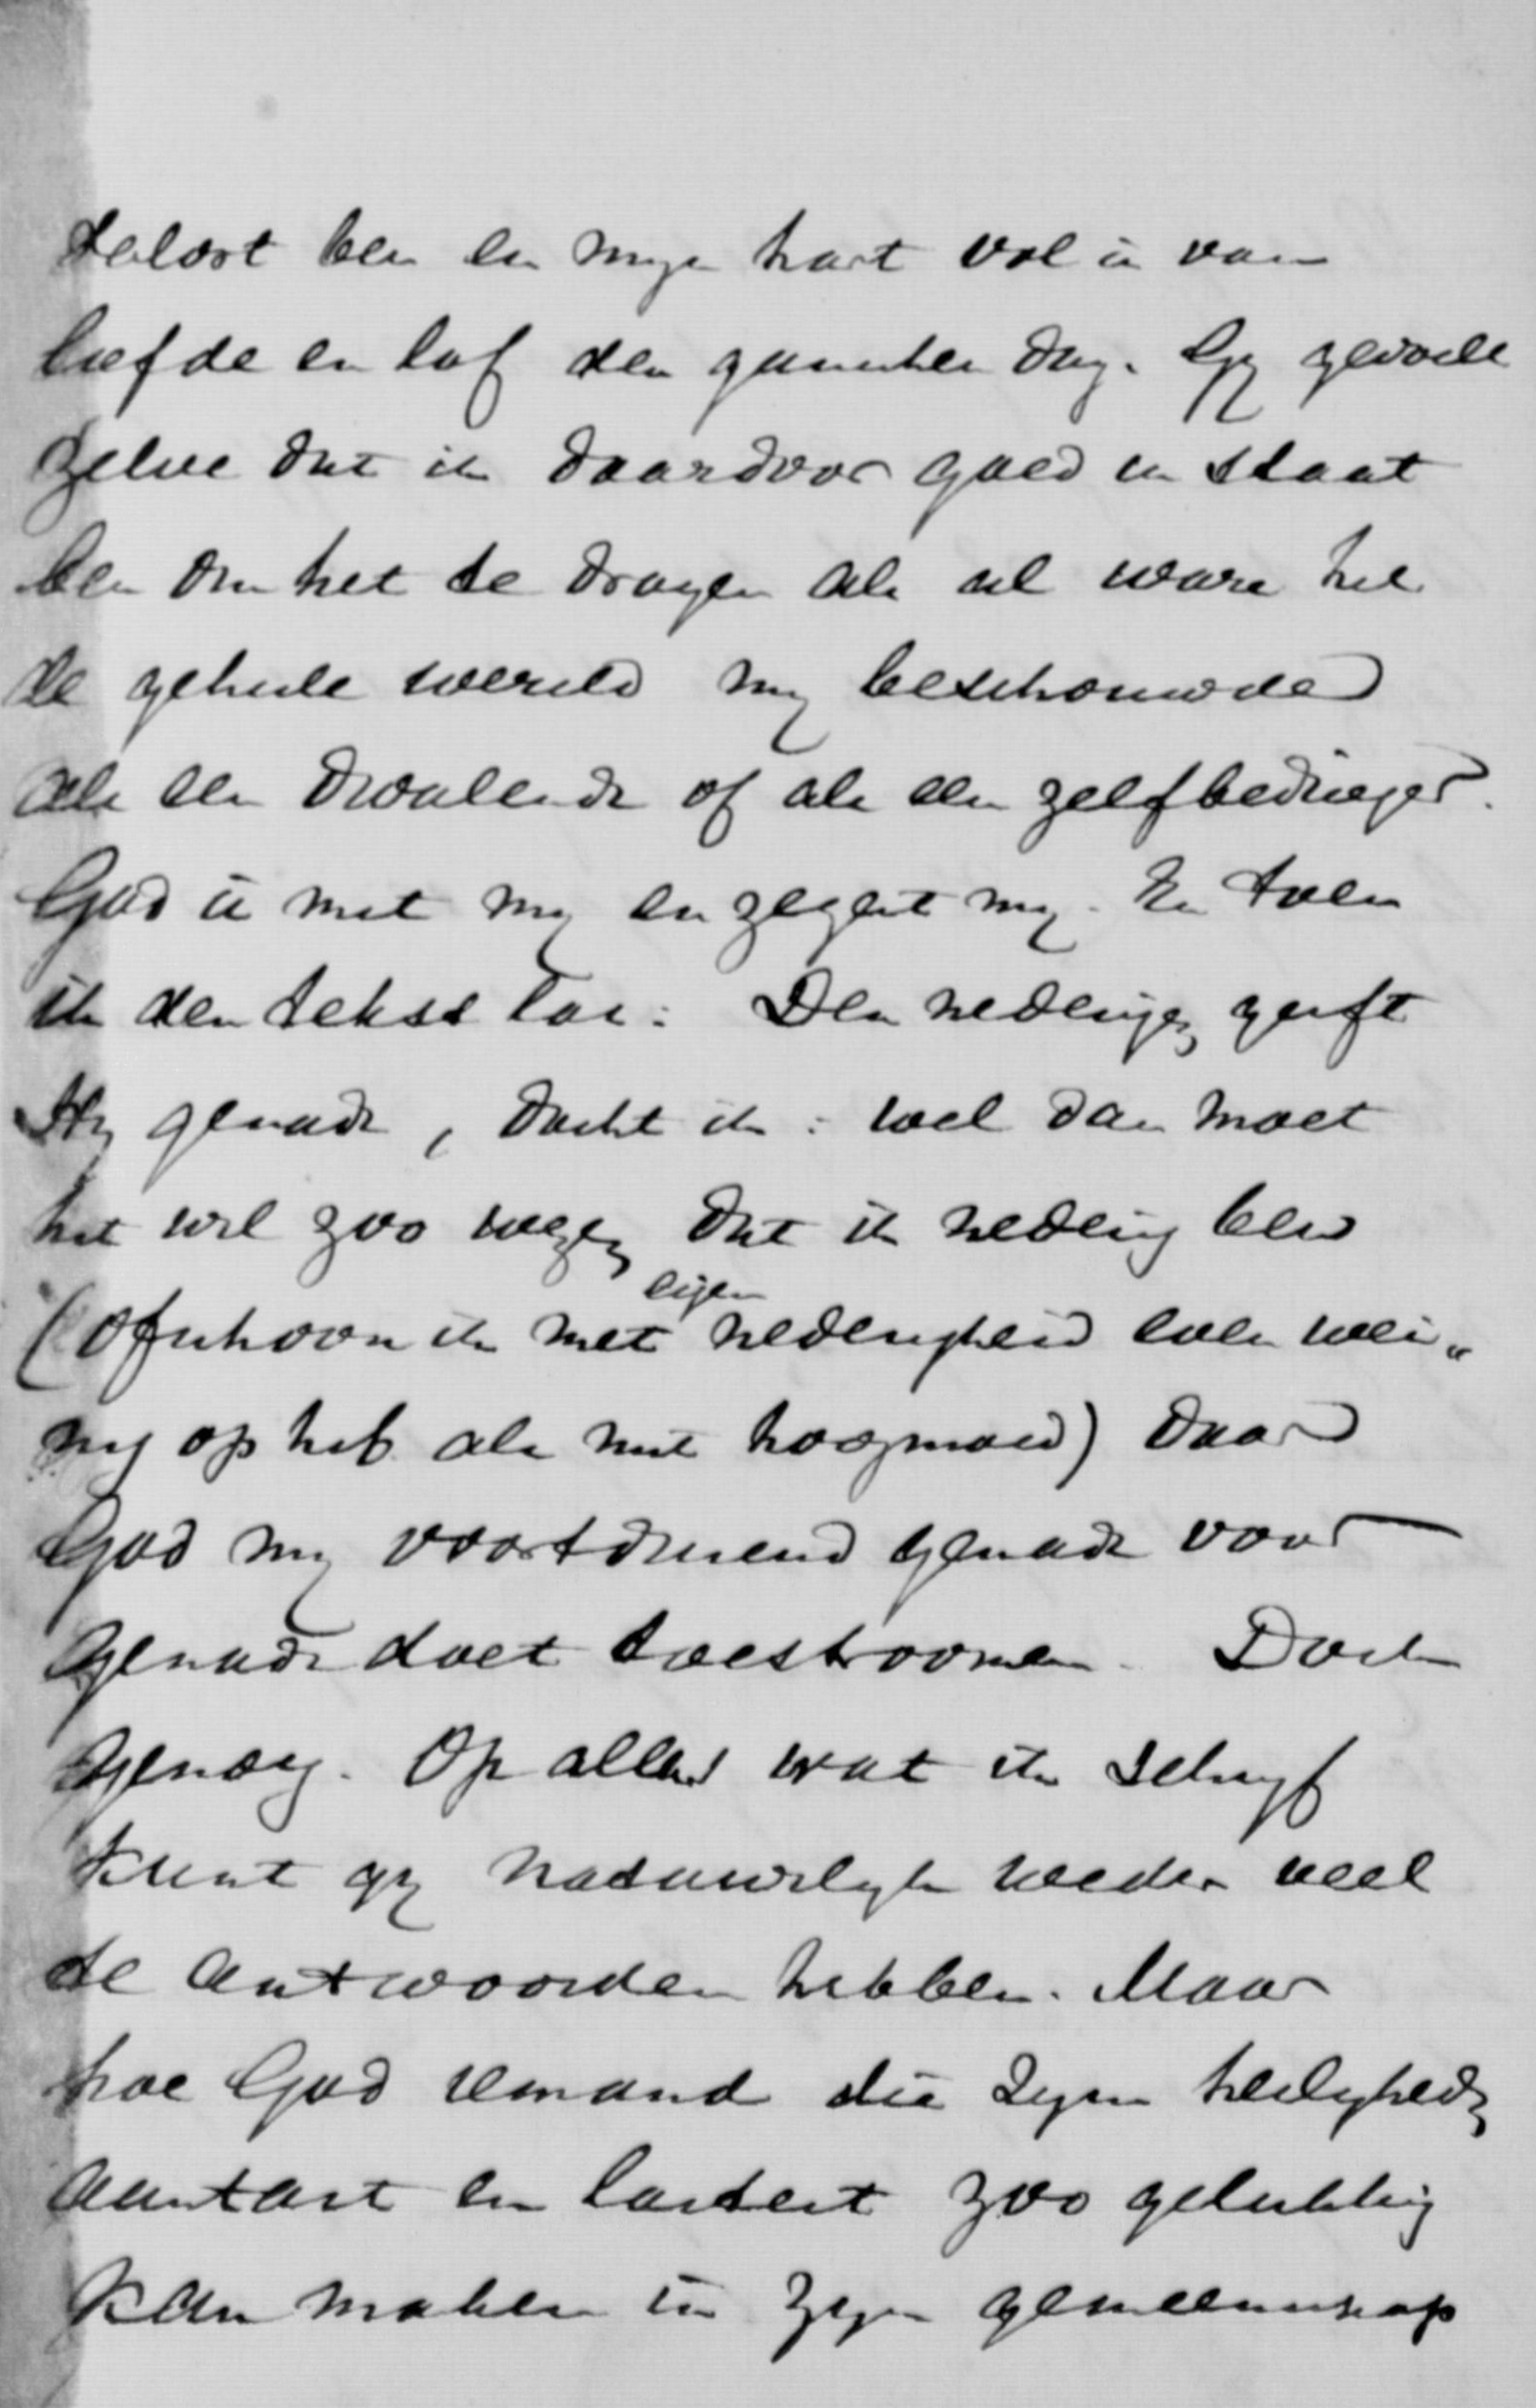 verlost ben en mijn hart vol is van
liefde en lof den ganschen dag. Gij gevoelt
zelve dat ik daardoor goed in staat
ben om het te dragen als al ware het
de geheele wereld mij beschouwde
als een dwalende of als een zelfbedrieger.
God is met mij en zegent mij. En toen
ik den tekst las: Den nederigen geeft
Hij genade, dacht ik: wel dan moet
het wel zoo wezen dat ik nederig ben
(ofschoon ik met eigen nederigheid even wei„
nig op heb als met hoogmoed) daar
God mij voortdurend genade voor
genade doet toestroomen. Doch
genoeg. Op alles wat ik schrijf
kunt gij natuurlijk weder veel
te antwoorden hebben. Maar
hoe God iemand die Zijn heiligheid
aantast en lastert zoo gelukkig
kan maken in Zijn gemeenschap